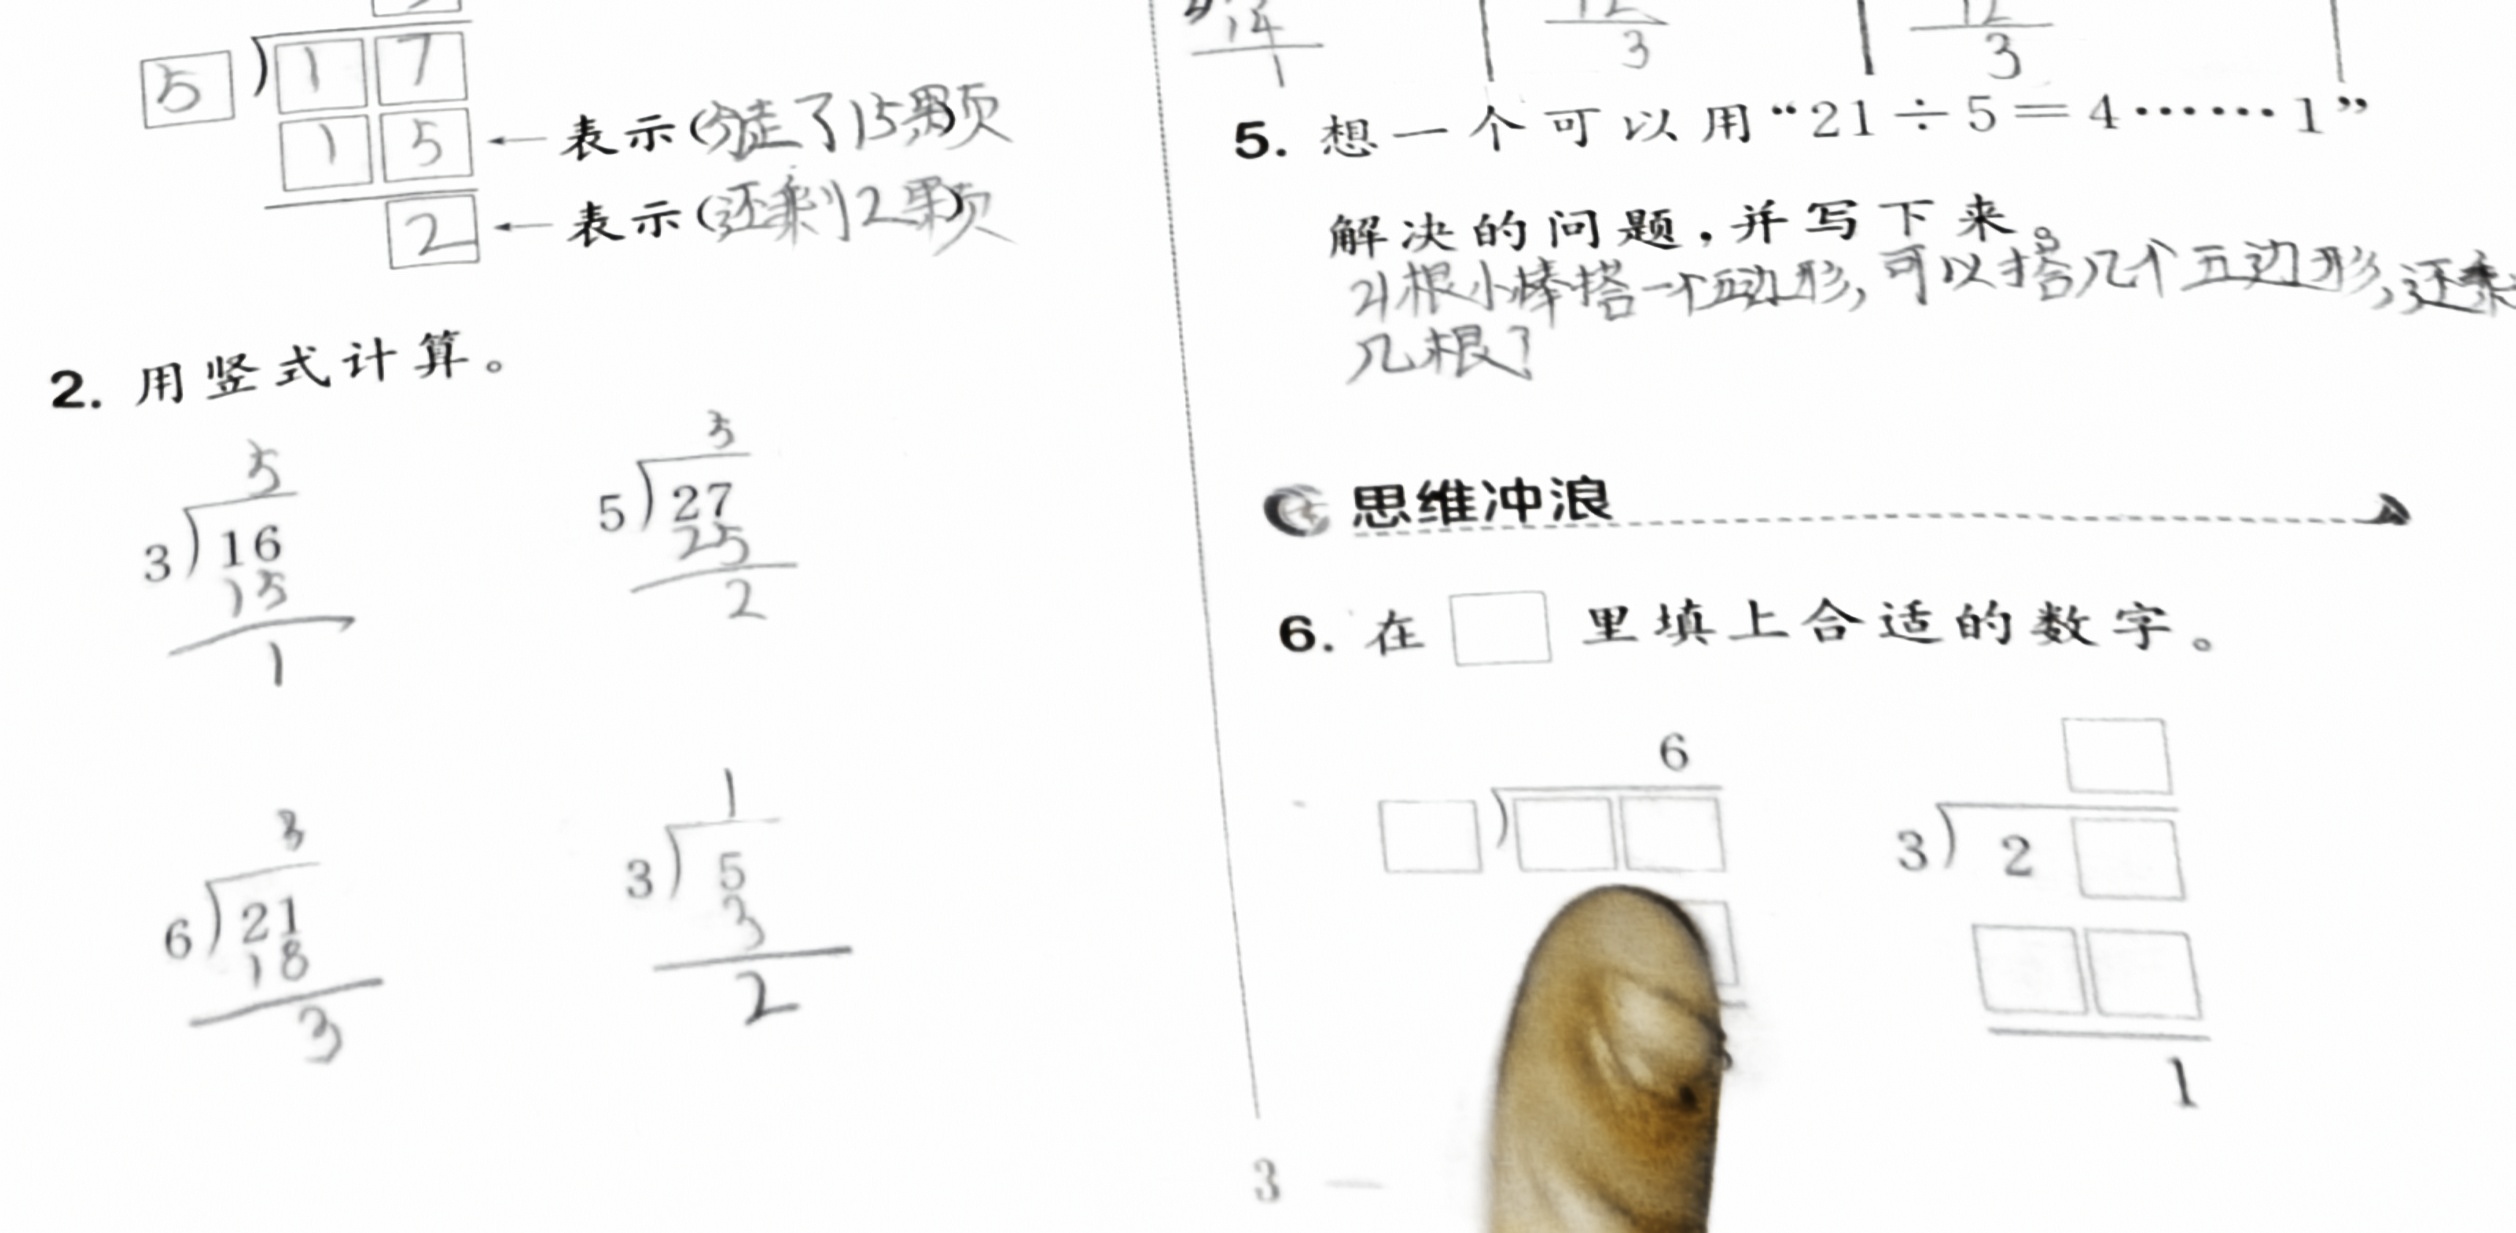 5 ) 1 7
1 5 ← 表示(分走了15颗)
2 ← 表示(还剩2颗)
2. 用竖式计算。
5
3 ) 16
15
1
5
5 ) 27
25
2
3
6 ) 21
18
3
1
3 ) 5
3
2
14
1
12
3
12
3
5. 想一个可以用“21÷5=4……1”
解决的问题,并写下来。
21根小棒搭一个五边形,可以搭几个五边形,还剩
几根?
思维冲浪
6. 在 □ 里填上合适的数字。
6
□ ) □ □
□
3 ) 2 □
□ □
1
3